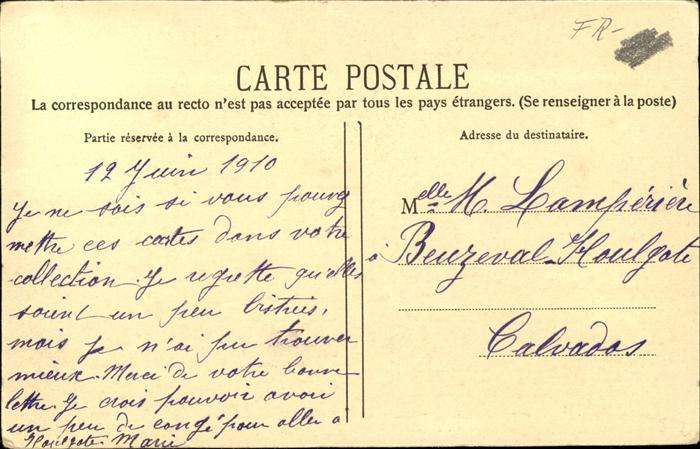 FR-
CARTE POSTALE
La correspondance au recto n'est pas acceptée par tous les pays étrangers. (Se renseigner à la poste)
Partie réservée à la correspondance.
12 Juin 1910
Je ne sais si vous pouvez
mettre ces cartes dans votre
collection. Je regrette qu'elles
soient un peu
mais je n'ai pu trouver
mieux. Merci de votre bonne
lettre. Je crois pouvoir avoir
un peu de congé pour aller à
Houlgate. Marie
Adresse du destinataire.
Melle M. Lampérière
à Beuzeval-Houlgate
Calvados